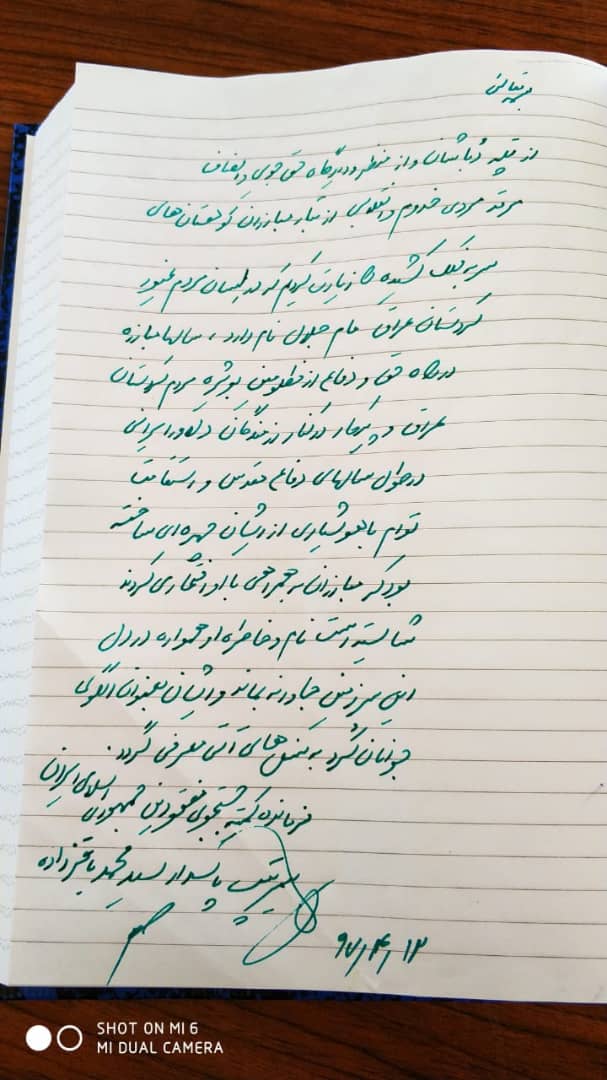 بسمه تعالی
از قله دباشان و از منظر و دیدگاه حق جوی و انصاف
مرقد مردی خدوم و انقلابی از تبار مبارزان کوهستان های
سر به فلک کشیده را زیارت کردیم که در لسان مردم غیور
کردستان عراق مام جلال نام دارد، سالها مبارزه
در راه حق و دفاع از مظلومین بویژه مردم کردستان
عراق و پیکار در کنار رزمندگان دلاور ایرانی
در طول سالهای دفاع مقدس و استقامت
توأم با هوشیاری از ایشان چهره ای ساخته
بود که مبارزان به همراهی با او افتخار می کردند
شایسته است نام و خاطره او همواره در دل
این سرزمین جاودانه بماند و ایشان بعنوان الگوی
جوانان کُرد به نسل های آتی معرفی گردد.
فرمانده کمیته جستجوی مفقودین جمهوری اسلامی ایران
سرتیپ پاسدار سید محمد باقرزاده
۹۷/۴/۱۳
SHOT ON MI 6
MI DUAL CAMERA